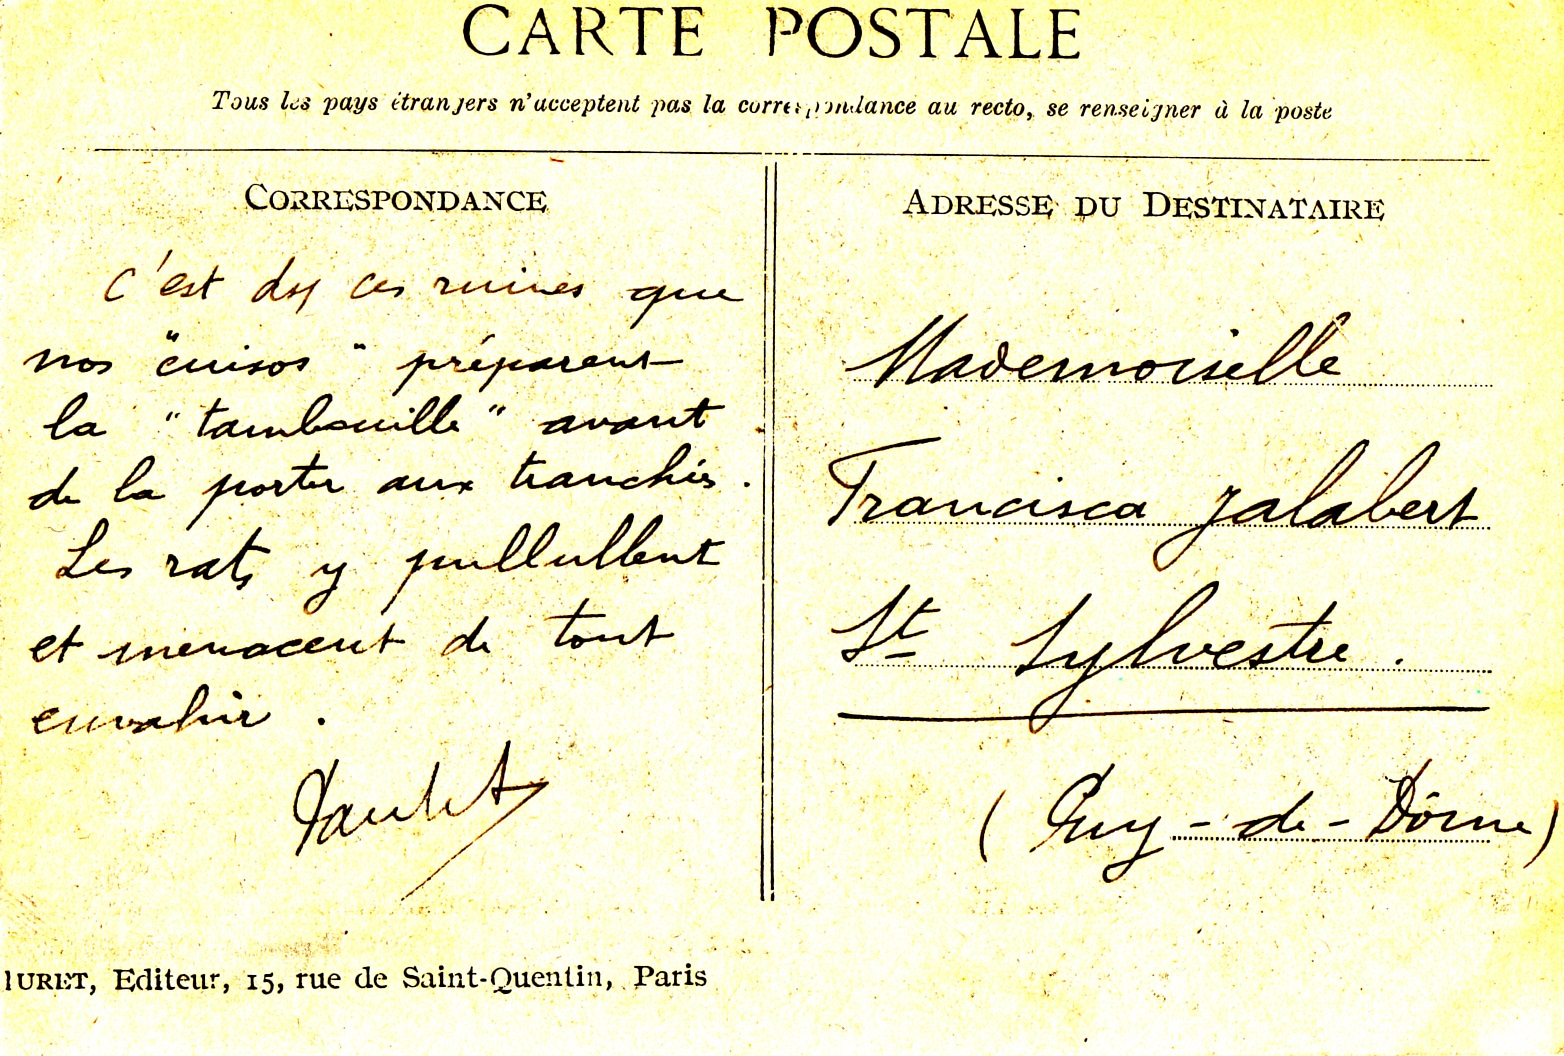 CARTE POSTALE
Tous les pays étrangers n'acceptent pas la correspondance au recto, se renseigner à la poste
CORRESPONDANCE
C'est ds ces ruines que
nos "cuisos" préparent
la "tambouille" avant
de la porter aux tranchées.
Les rats y pullullent
et menacent de tout
envahir.
ADRESSE DU DESTINATAIRE
Mademoiselle
Francisca Jalabert
St Sylvestre.
(Puy-de-Dôme)
URET, Editeur, 15, rue de Saint-Quentin, Paris